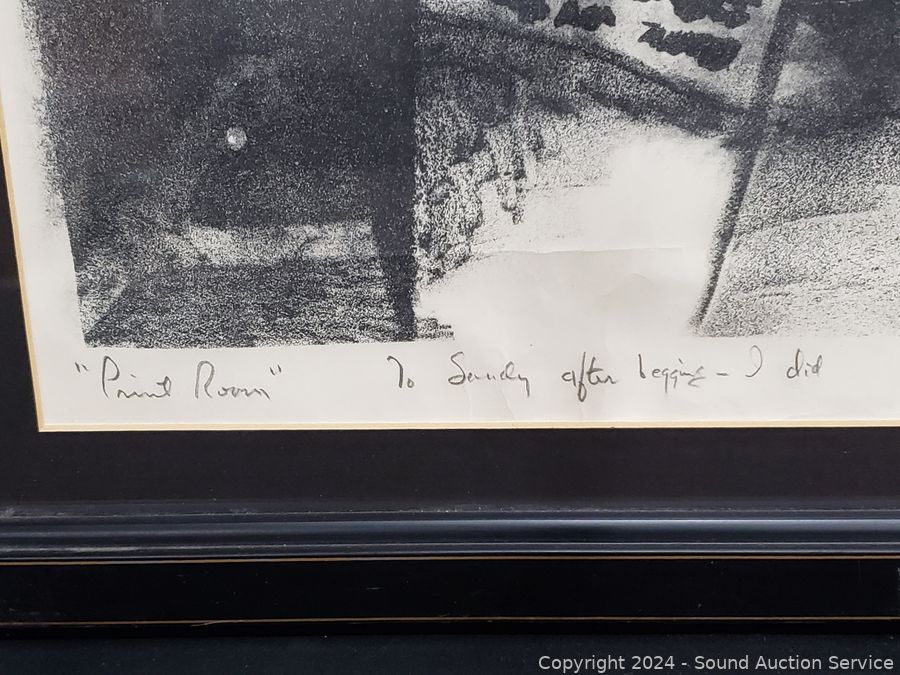 "Print Room" To Sandy after begging - I did
Copyright © 2024 - Sound Auction Service